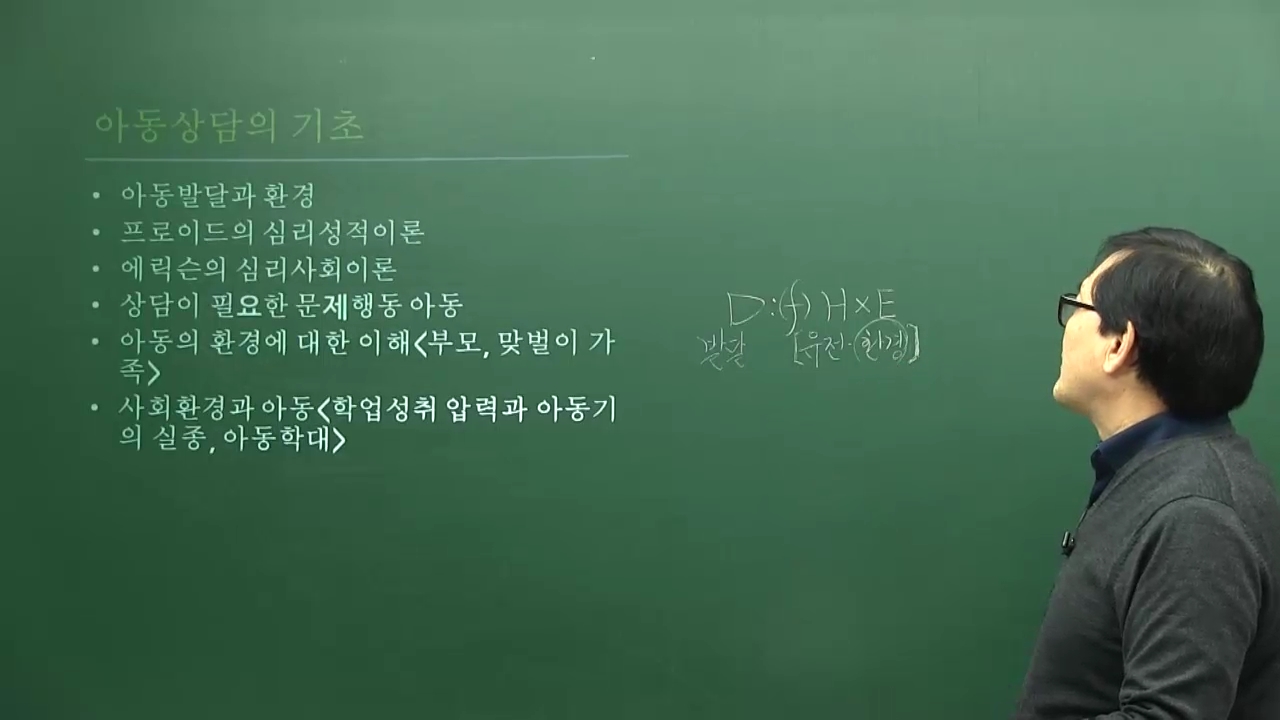 아동상담의 기초
• 아동발달과 환경
• 프로이드의 심리성적이론
• 에릭슨의 심리사회이론
• 상담이 필요한 문제행동 아동
• 아동의 환경에 대한 이해<부모, 맞벌이 가
족>
• 사회환경과 아동<학업성취 압력과 아동기
의 실종, 아동학대>
D:(f) H×E
발달 [유전·환경]